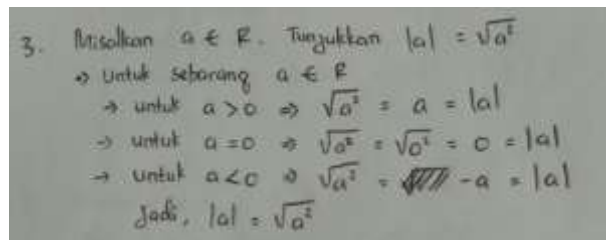 3. Misalkan a ∈ R. Tunjukkan |a| = √a²
→ Untuk sebarang a ∈ R
→ untuk a>0 ⇒ √a² = a = |a|
→ untuk a=0 ⇒ √a² = √0² = 0 = |a|
→ untuk a<0 ⇒ √a² = -a = |a|
Jadi, |a| = √a²